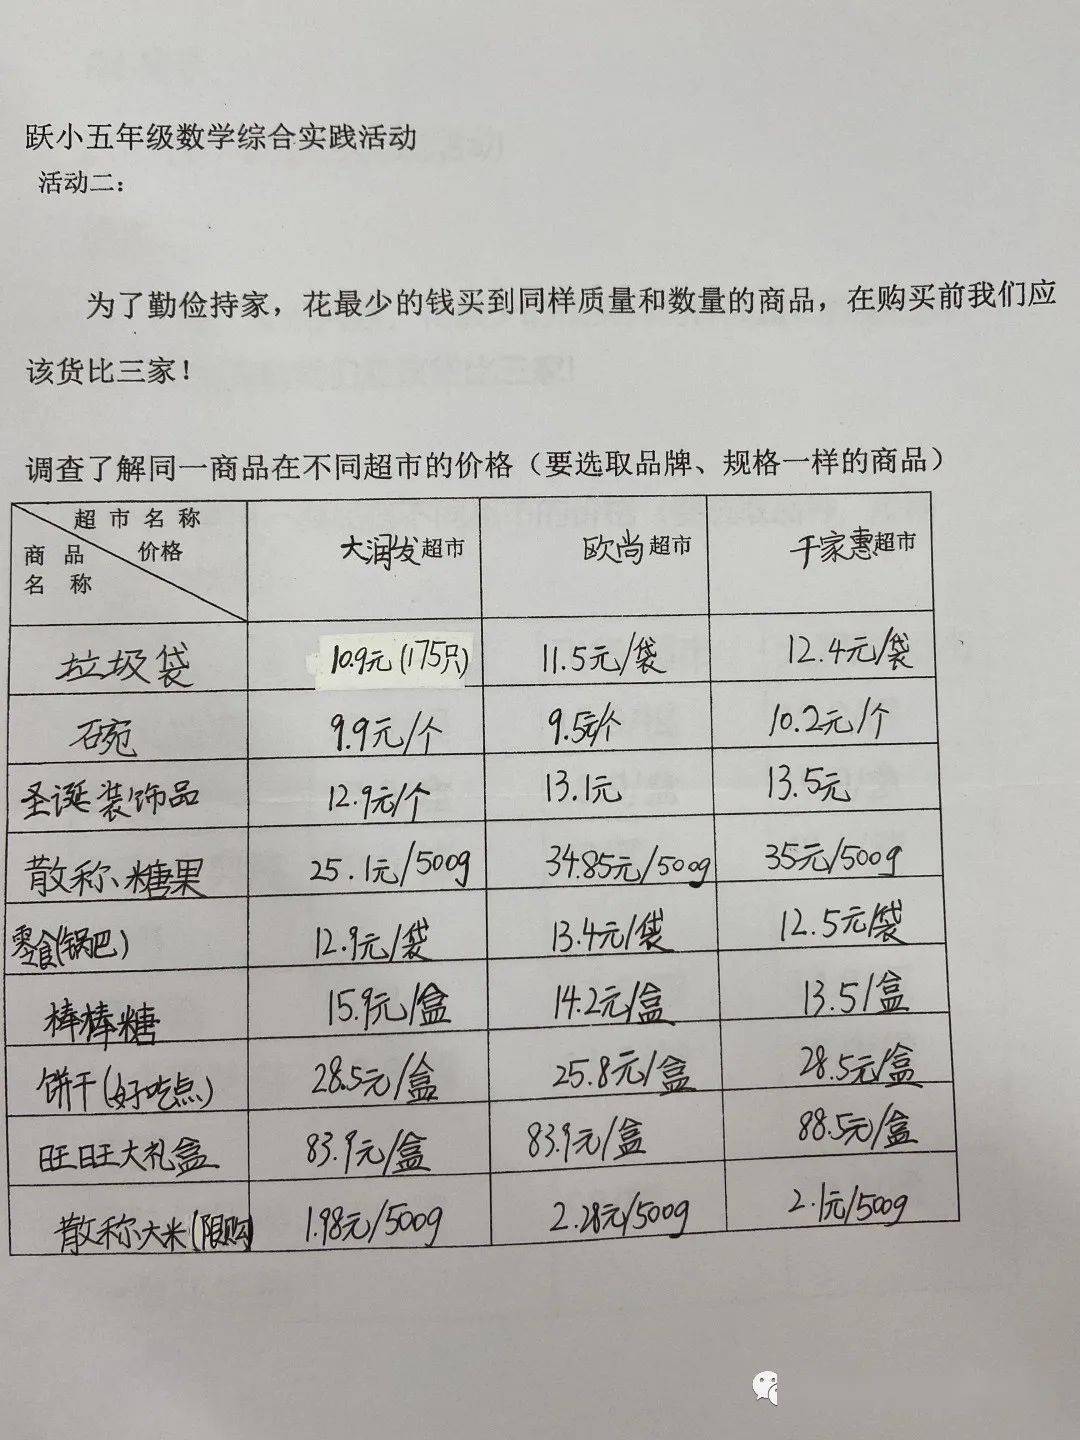 跃小五年级数学综合实践活动
活动二：
为了勤俭持家，花最少的钱买到同样质量和数量的商品，在购买前我们应
该货比三家！
调查了解同一商品在不同超市的价格（要选取品牌、规格一样的商品）
超市名称
价格
商品
名称
大润发超市 欧尚超市 千家惠超市
垃圾袋 10.9元(175只) 11.5元/袋 12.4元/袋
碗 9.9元/个 9.5元/个 10.2元/个
圣诞装饰品 12.9元/个 13.1元 13.5元
散称、糖果 25.1元/500g 34.85元/500g 35元/500g
零食(锅巴) 12.9元/袋 13.4元/袋 12.5元/袋
棒棒糖 15.9元/盒 14.2元/盒 13.5/盒
饼干(好吃点) 28.5元/盒 25.8元/盒 28.5元/盒
旺旺大礼盒 83.9元/盒 83.9元/盒 88.5元/盒
散称大米(限购) 1.98元/500g 2.28元/500g 2.1元/500g